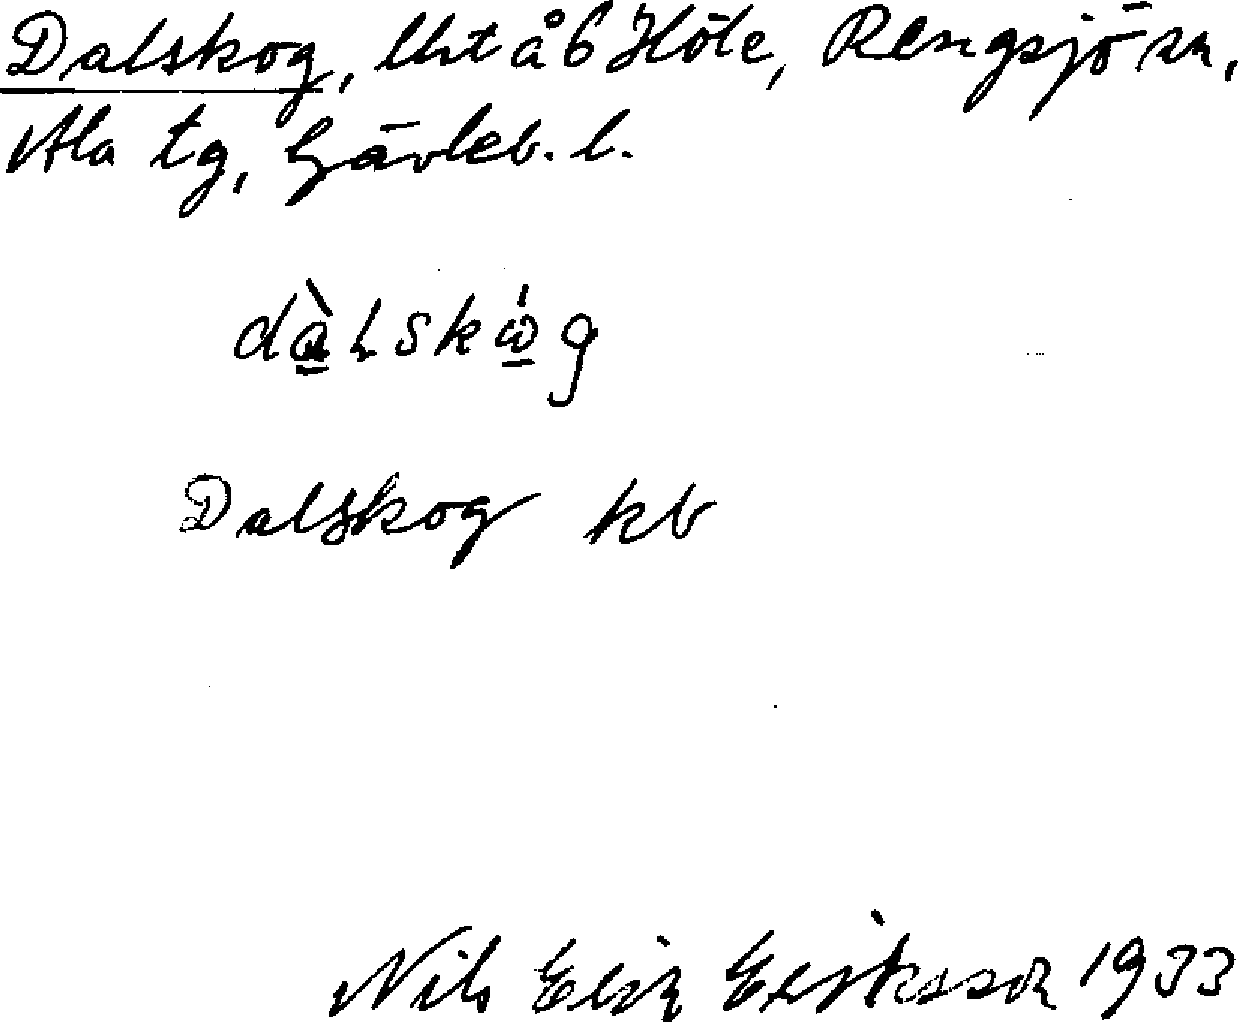 Dalskog, lht å 6 Höle, Rengsjö sn,
Ala tg, Gävleb. l.
dàlskώg
Dalskog kb
Nils Erik Eriksson 1933